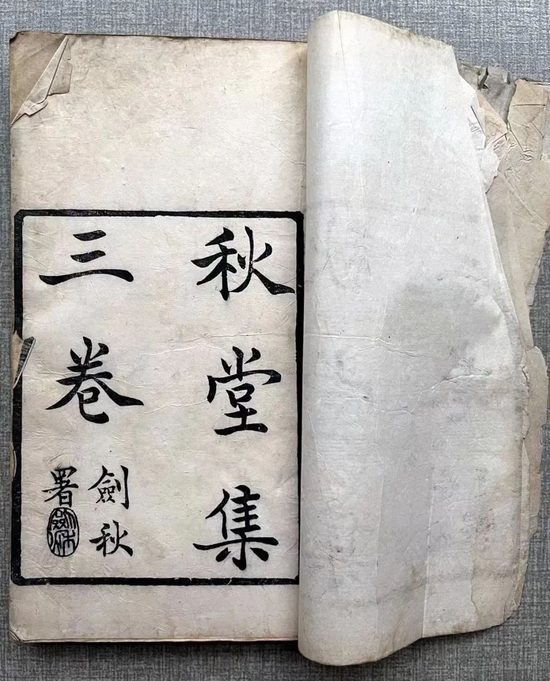 秋堂集
三卷
劍秋
署